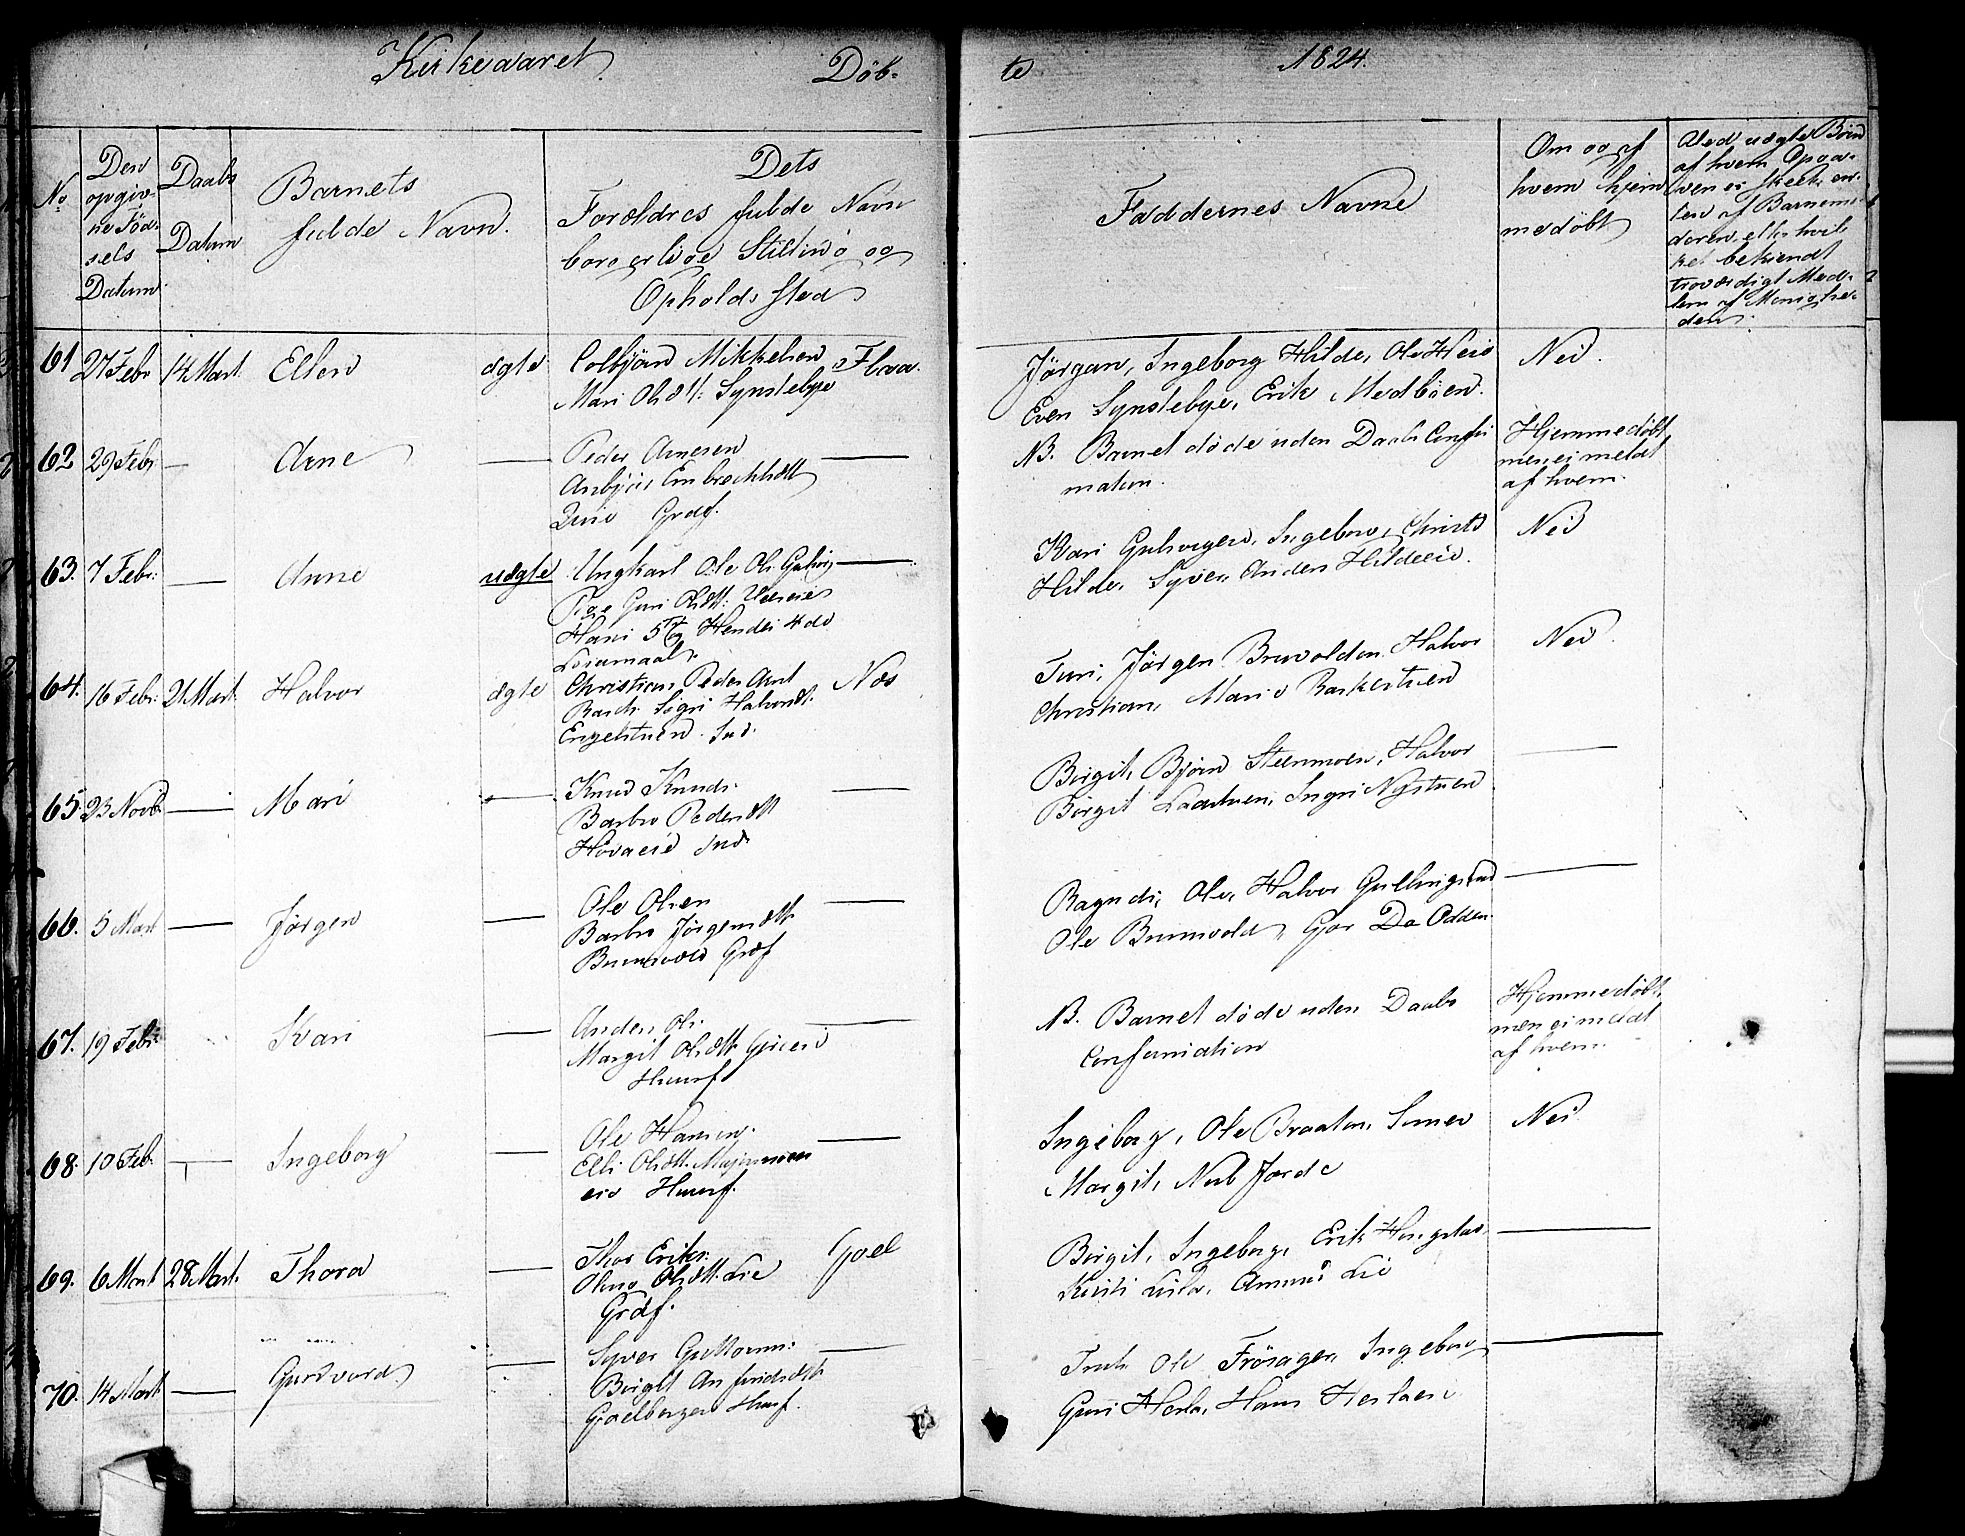 Kirkeaaret Døb-
te 1824.
No
Den
opgiv-
ne Fød-
sels
Datum
Daabs
Datum
Barnets
fulde Navn.
Dets
Forældres fulde Navn
borgerlige Stilling og
Opholds sted
Faddernes Navne
Om og af
hvem hjem
medøbt
Med uægte Børn
af hvem Opgi-
ven er skeet, en-
ten af Barnemo-
deren, eller hvil-
ket bekiendt
troværdigt Med-
lem af Menighe-
den.
61 27 Febr 14 Mart. Ellen ægte Colbjørn Mikkelsen Flaa.
Mari Olsdtt: Synstebye
Jörgen, Ingeborg Hilde, Ole Heie
Even Synstebye, Erik Medböen.
Nei.
62 29 Febr — Arne — Peder Arnesen —
Anbjör Embrechtsdtt
Grøf.
NB. Barnet døde uden Daabs Confir
mation.
Hjemmedøbt
men ei meldt
af hvem.
63. 7 Febr: — Anne uægte Ungkarl Ole Ols. —
Pige Guri Olsdtt:
Hans 5te og Hendes 4de
Leiermaal.
Kari Ingebor, Christi
Hilde, Syver, Anders Hildeeie.
Nei
64. 16 Febr: 21 Mart. Halvor ægte Christian Peder Ant Næs
Bach. Sigri Halvorsdt.
Engelstuen. Ind.
Turi, Jörgen Bruvolden. Halvor
Christian, Marie Barkestuen
Nei.
65. 23 Novb. — Mari — Knud Knuds. —
Barbro Pedersdtt
Hovaeie Ind.
Birgit, Bjørn Steenmoen, Halvor
Birgit Laastuen, Ingri Nystuen
—
66. 5 Mart — Jørgen — Ole Olsen —
Barbro Jørgensdtt.
Brunsvold Grøf
Ragndi, Ole, Halvor Gullingsrud
Ole Brunsvold, Gjør Do Odden.
—
67. 19 Febr: Kari — Anders Ols. —
Margit Olsdtt.
Huusf
NB. Barnet døde uden Daabs
Confirmation
Hjemmedøbt,
men ei meldt
af hvem.
68. 10 Feb. — Ingeborg — Ole Hansen. —
Elli Olsdtt.
eie Huusf.
Ingeborg, Ole Braaten,
Margit, Nub Jorde
Nei
69. 6 Mart 28 Mart. Thora — Thor Eriks: Goel
Olsdtt. Lie
Grøf.
Birgit, Ingeborg, Erik
Kisti Amund Lie
—
70. 14 Mart — Gundvord — Syver Guttorm: —
Birgit Anfindsdtt
Huusf.
Ole Frösager, Ingeborg
Guri Hans
—